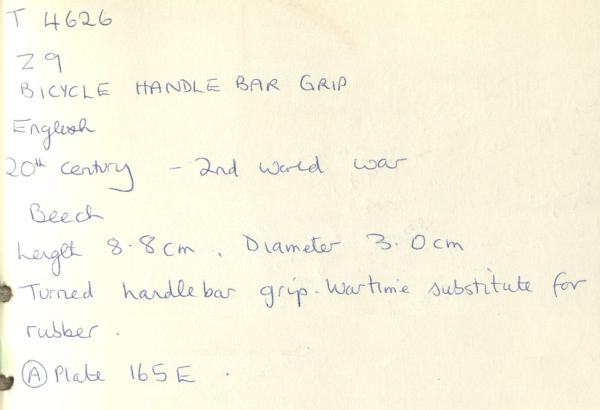 T 4626
Z9
BICYCLE HANDLE BAR GRIP
English
20th century - 2nd World war
Beech
Length 8.8cm. Diameter 3.0cm
Turned handlebar grip. Wartime substitute for
rubber.
Ⓐ Plate 165E.